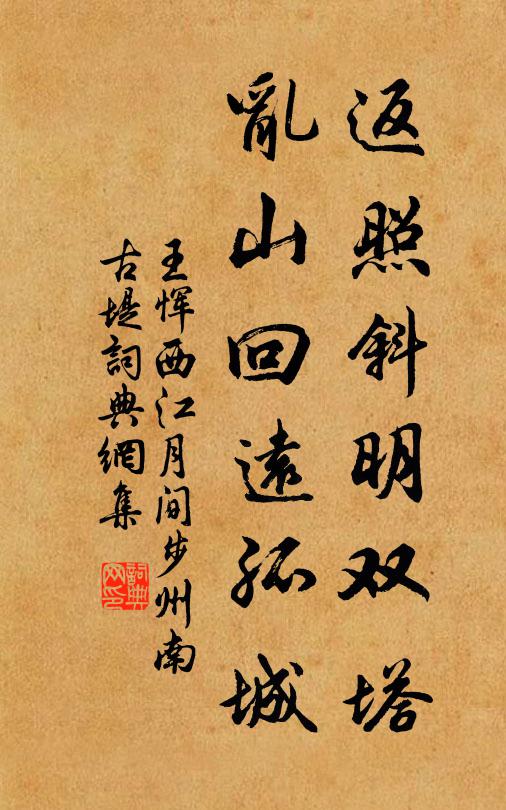 返照斜明双塔
亂山回遠孤城
王恽西江月间步州南
古堤詞典網集
詞典
网印